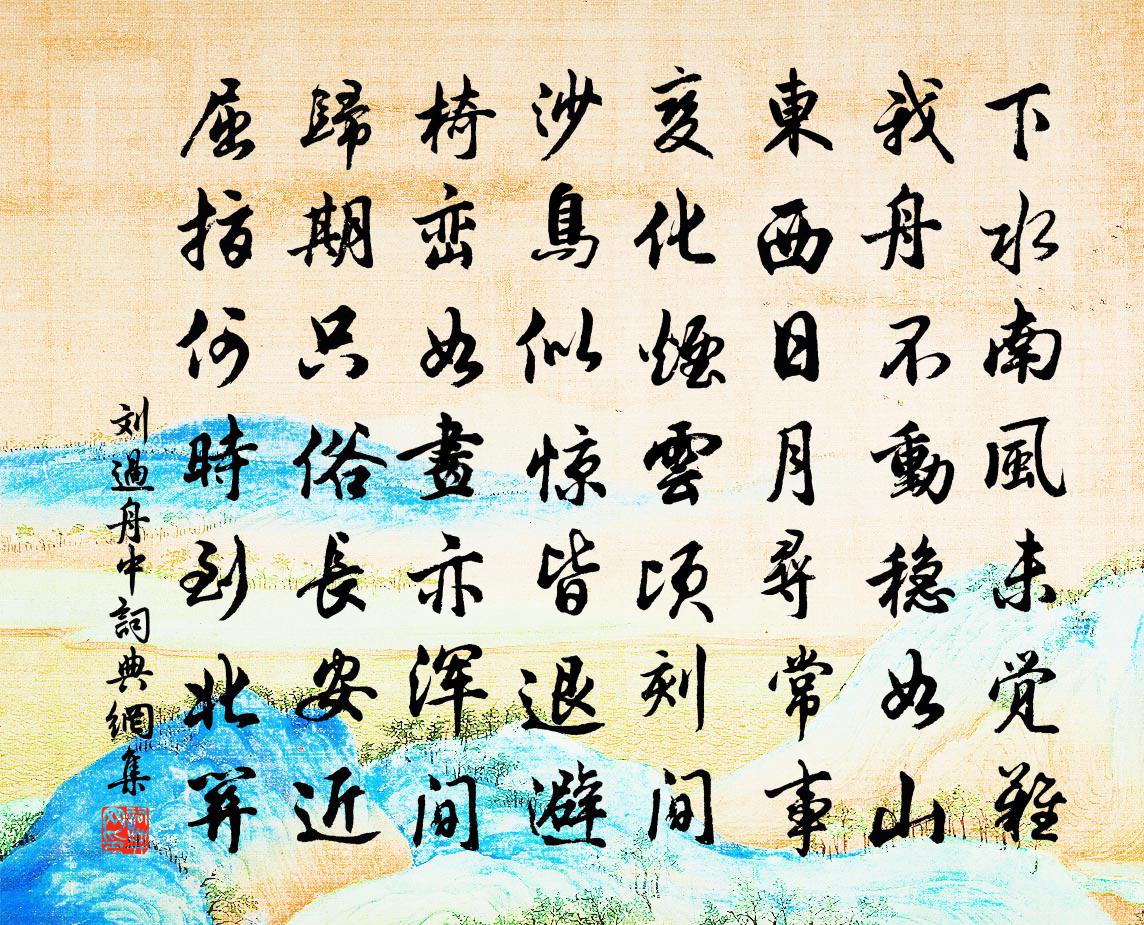 下水南風未覚難
我舟不動穏如山
東西日月尋常事
变化煙雲頃刻間
沙鳥似惊皆退避
椅峦如畫亦浑間
歸期只俗長安近
屈指何時到北关
刘過舟中詞典網集